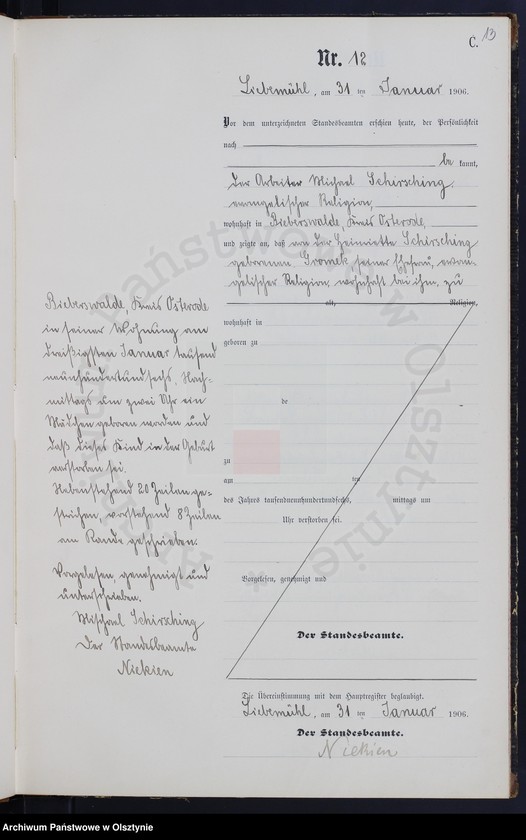 C. 13
Nr. 12
Liebemühl, am 31 ten Januar 1906.
Vor dem unterzeichneten Standesbeamten erschien heute, der Persönlichkeit
nach
be kannt,
der Arbeiter Michael Schirsching,
evangelischer Religion,
wohnhaft in Bieberswalde, Kreis Osterode,
und zeigte an, daß von der Henriette Schirsching
geborenen Gromek, seiner Ehefrau, evan-
gelischer Religion, wohnhaft bei ihm, zu
alt, Religion,
wohnhaft in
geboren zu
de
zu
am ten
des Jahres tausendneunhundertundsechs, mittags um
Uhr verstorben sei.
Vorgelesen, genehmigt und
Der Standesbeamte.
Bieberswalde, Kreis Osterode
in seiner Wohnung am
dreißigsten Januar tausend
neunhundertundsechs, Nach-
mittags um zwei Uhr ein
Mädchen geboren worden und
daß dieses Kind in der Geburt
verstorben sei.
Nebenstehend 20 Zeilen ge-
strichen, vorstehend 8 Zeilen
am Rande geschrieben.
Vorgelesen, genehmigt und
unterschrieben.
Michael Schirsching
Der Standesbeamte
Niekien
Die Übereinstimmung mit dem Hauptregister beglaubigt.
Liebemühl, am 31 ten Januar 1906.
Der Standesbeamte.
Niekien
Archiwum Państwowe w Olsztynie
Archiwum Państwowe w Olsztynie